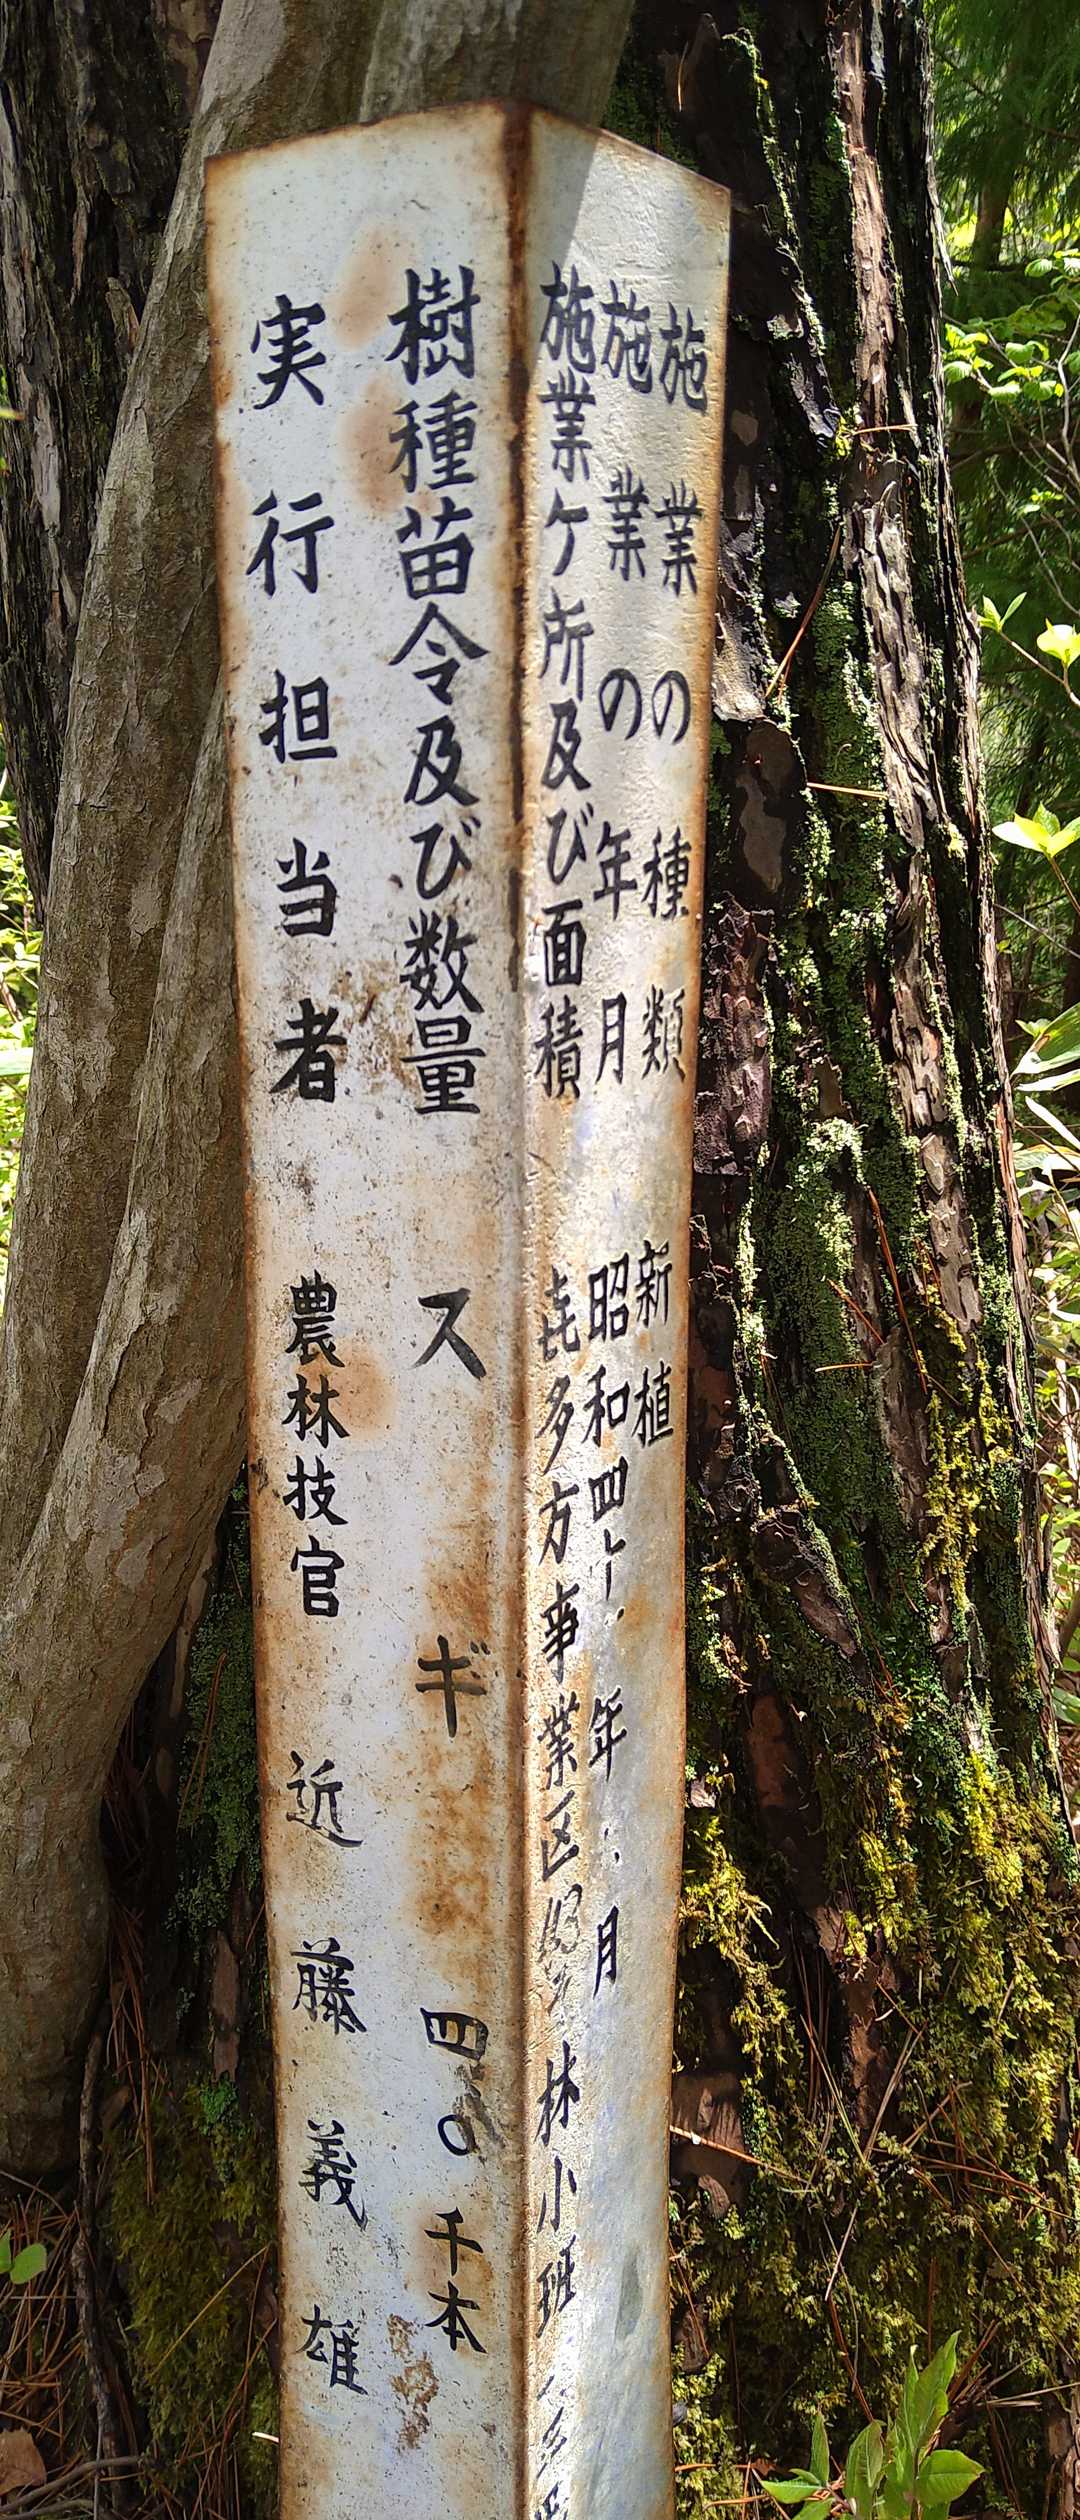 施業の種類 新植
施業の年月 昭和四十 年 月
施業ケ所及び面積 㐂多方事業区 林小班
樹種苗令及び数量 スギ 四 〇千本
実行担当者 農林技官 近藤義雄